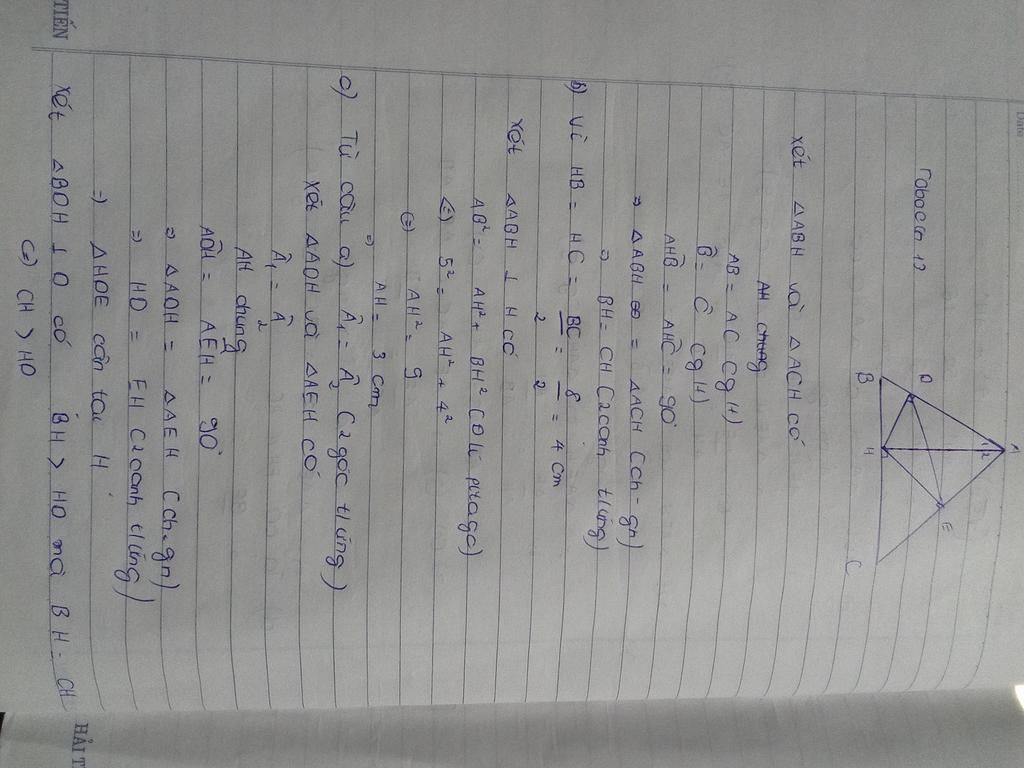 TIẾN
HẢI T
Toboccn 12
A
1 2
D
E
B
H
C
Xét △ABH và △ACH có
AH chung
AB = AC C g H)
B̂ = Ĉ C g H)
AHB = AHC = 90°
⇒ △ABH = △ACH C ch - gn)
⇒ BH = CH C 2 canh t/ứng)
b) Vì HB = HC = BC/2 = 8/2 = 4 cm
Xét △ABH ⊥ H có
AB² = AH² + BH² C Đ lí pitago)
⇔ 5² = AH² + 4²
⇔ AH² = 9
⇒ AH = 3 cm
c) Từ câu a) Â₁ = Â₂ C 2 góc t/ứng)
Xét △ADH và △AEH có
Â₁ = Â₂
AH chung
ADH = AEH = 90°
⇒ △ADH = △AEH C ch-gn)
⇒ HD = EH C 2 canh t/ứng)
⇒ △HDE cân tại H
Xét △BDH ⊥ D có BH > HD mà BH = CH
⇔ CH > HD